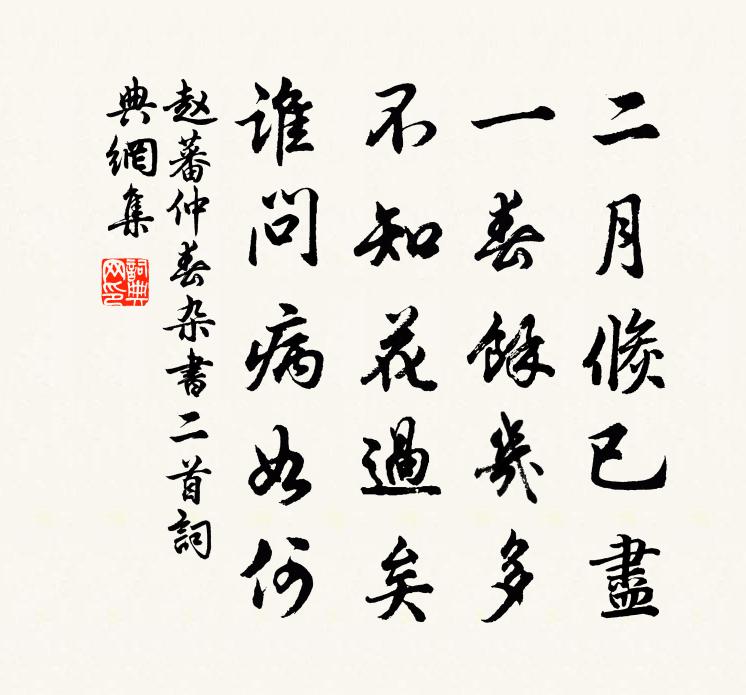 二月倐已盡
一春餘幾多
不知花過矣
誰問病如何
赵蕃仲春杂書二首詞
典網集
詞典
网印